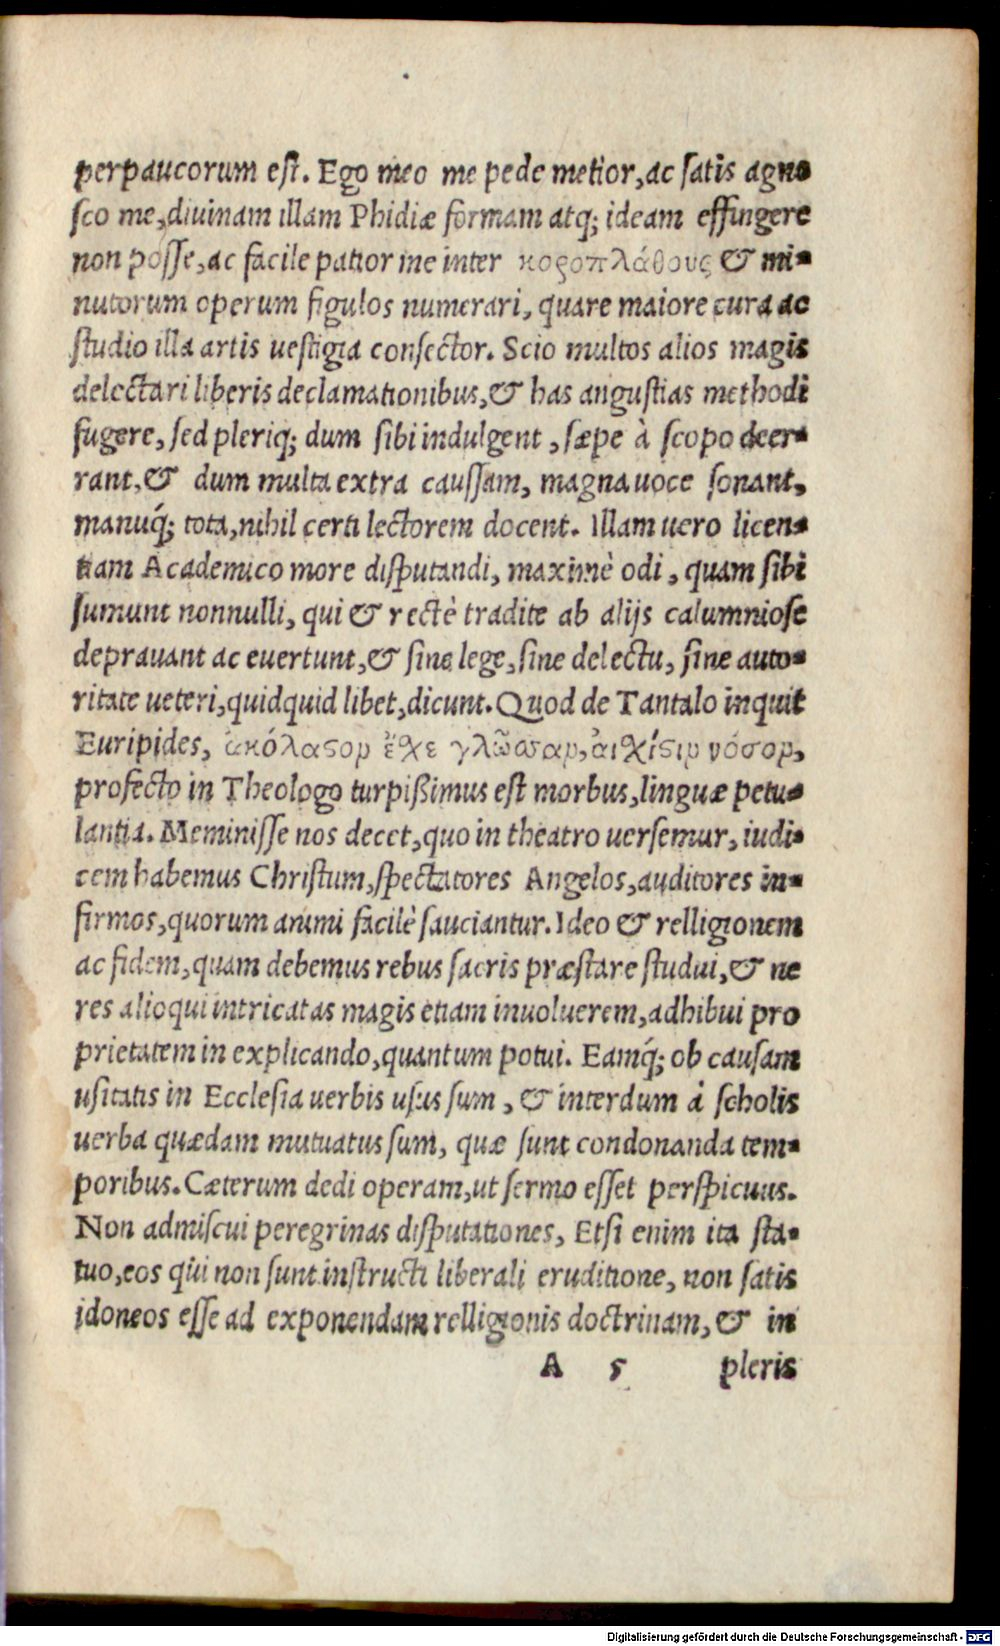 perpaucorum eſt. Ego meo me pede metior, ac ſatis agno
ſco me, diuinam illam Phidiæ formam atq; ideam effingere
non poſſe, ac facile patior me inter κοροπλάθους & mi-
nutorum operum figulos numerari, quare maiore cura ac
ſtudio illa artis ueſtigia conſector. Scio multos alios magis
delectari liberis declamationibus, & has anguſtias methodi
fugere, ſed pleriq; dum ſibi indulgent, ſæpe à ſcopo deer-
rant, & dum multa extra cauſſam, magna uoce ſonant,
manuq́; tota, nihil certi lectorem docent. Illam uero licen-
tiam Academico more diſputandi, maximè odi, quam ſibi
ſumunt nonnulli, qui & rectè tradite ab alijs calumnioſe
deprauant ac euertunt, & ſine lege, ſine delectu, ſine auto-
ritate ueteri, quidquid libet, dicunt. Quod de Tantalo inquit
Euripides, ἀκόλαϛον ἔχε γλῶσσαν, αἰχίϛιν νόσον,
profecto in Theologo turpißimus eſt morbus, linguæ petu-
lantia. Meminiſſe nos decet, quo in theatro uerſemur, iudi-
cem habemus Chriſtum, ſpectatores Angelos, auditores in-
firmos, quorum animi facilè ſauciantur. Ideo & relligionem
ac fidem, quam debemus rebus ſacris præſtare ſtudui, & ne
res alioqui intricatas magis etiam inuoluerem, adhibui pro
prietatem in explicando, quantum potui. Eamq́; ob cauſam
uſitatis in Eccleſia uerbis uſus ſum, & interdum à ſcholis
uerba quædam mutuatus ſum, quæ ſunt condonanda tem-
poribus. Cæterum dedi operam, ut ſermo eſſet perſpicuus.
Non admiſcui peregrinas diſputationes, Etſi enim ita ſta-
tuo, eos qui non ſunt inſtructi liberali eruditione, non ſatis
idoneos eſſe ad exponendam relligionis doctrinam, & in
A 5 pleris
Digitalisierung gefördert durch die Deutsche Forschungsgemeinschaft - DFG